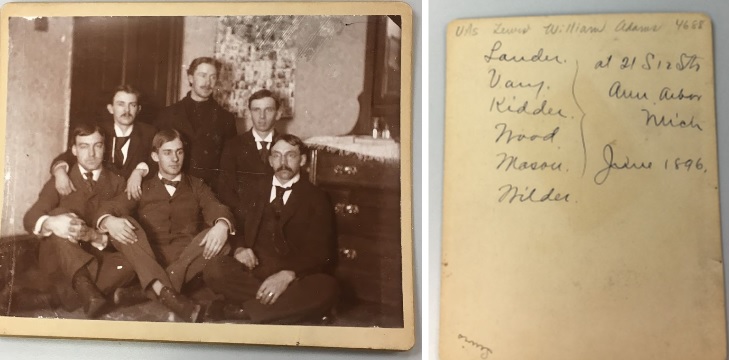 UAs Lewis William Adams 4688
Lander.
Vary.
Kidder.
Wood
Mason.
Wilder.
at 21 S 12 St
Ann Arbor
Mich
June 1896.
Lewis